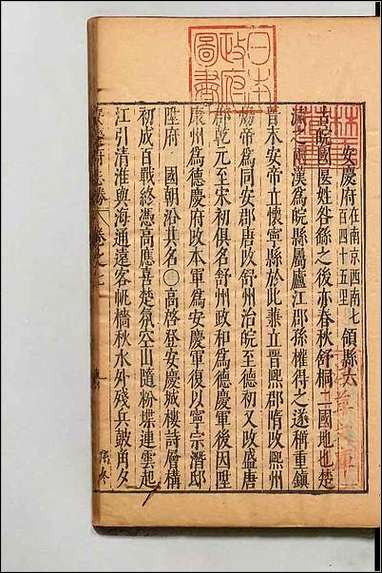 日本
政府
圖書
安慶府在南京西南七百四十五里領縣六
古皖國偃姓咎繇之後亦春秋舒桐二國地也楚
滅之兩漢爲皖縣屬廬江郡孫權得之遂稱重鎮
晉末安帝立懷寧縣於此兼立晉熙郡隋改熙州
煬帝爲同安郡唐改舒州治皖至德初又改盛唐
郡乾元至宋初俱名舒州政和爲德慶軍後因陞
康州爲德慶府改本軍爲安慶軍復以寧宗潛邸
陞府 國朝沿其名○高啓登安慶城樓詩層構
初成百戰終憑高應喜楚氛空山隨粉堞連雲起
江引清淮與海通遠客帆檣秋水外殘兵鼓角夕
淺草文庫